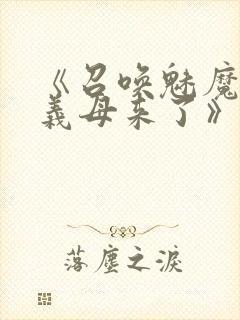 《召唤魅魔
義母来了》
落塵之淚